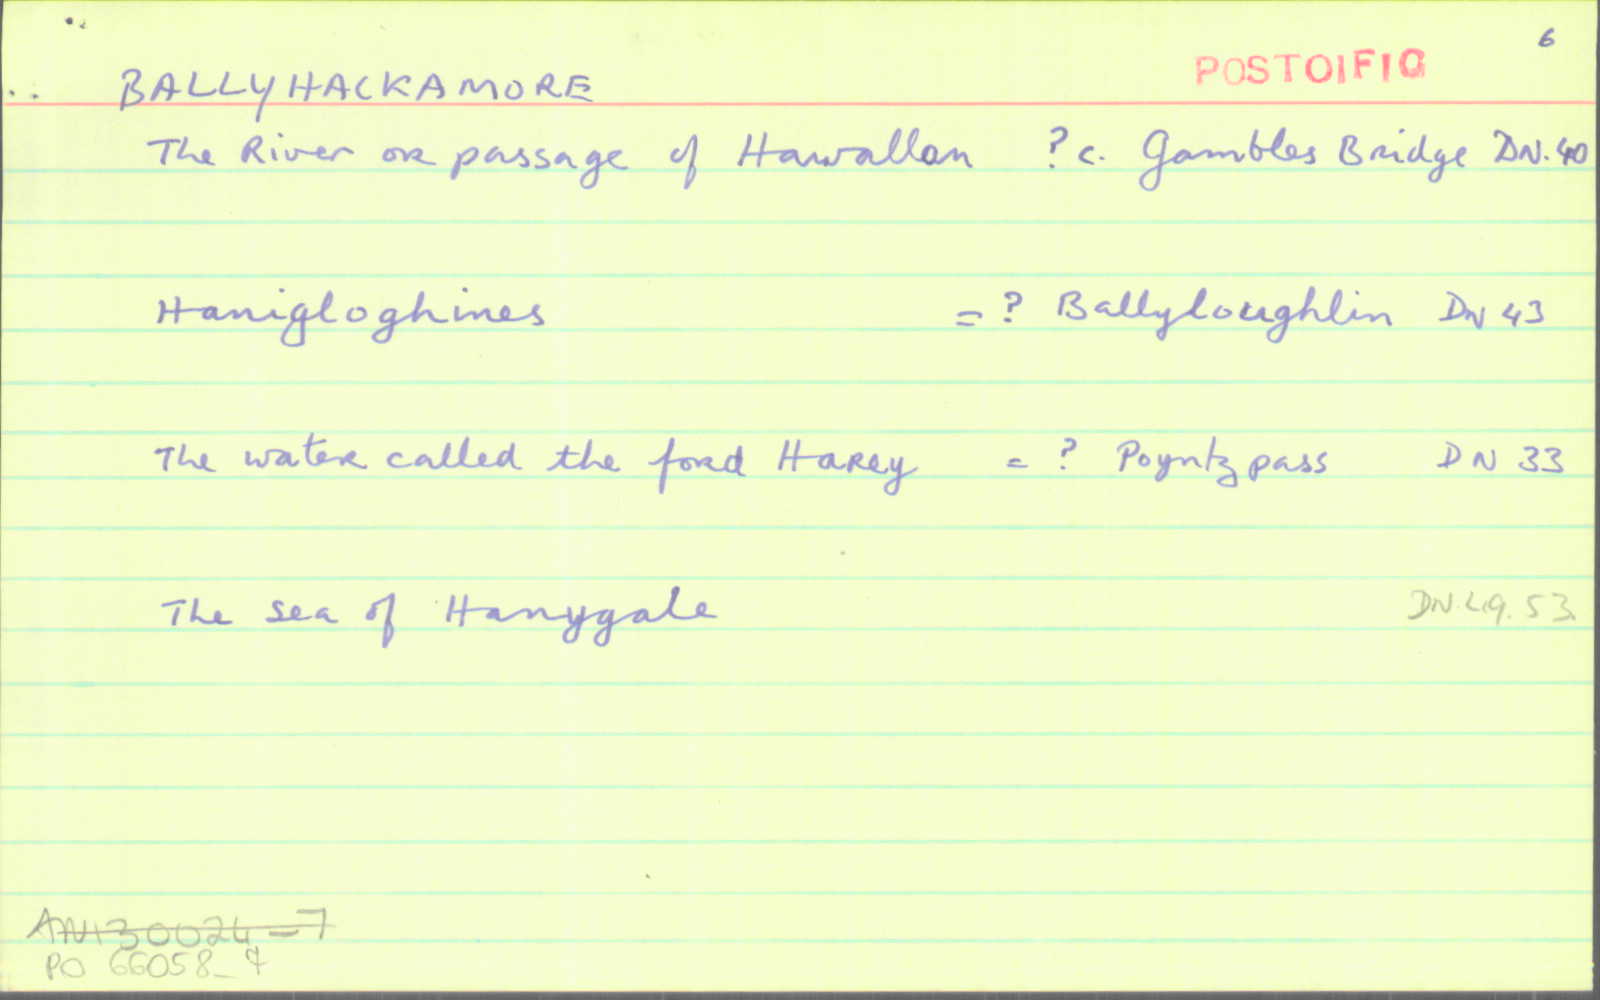 6
BALLYHACKAMORE POSTOIFIG
The River or passage of Hawallon ? c. Gambles Bridge DN. 40
Hanigloghines = ? Ballyloughlin DN 43
The water called the ford Harey = ? Poyntzpass DN 33
The sea of Hanygale DN. 49. 53.
AN130024-7
PO 66058_7